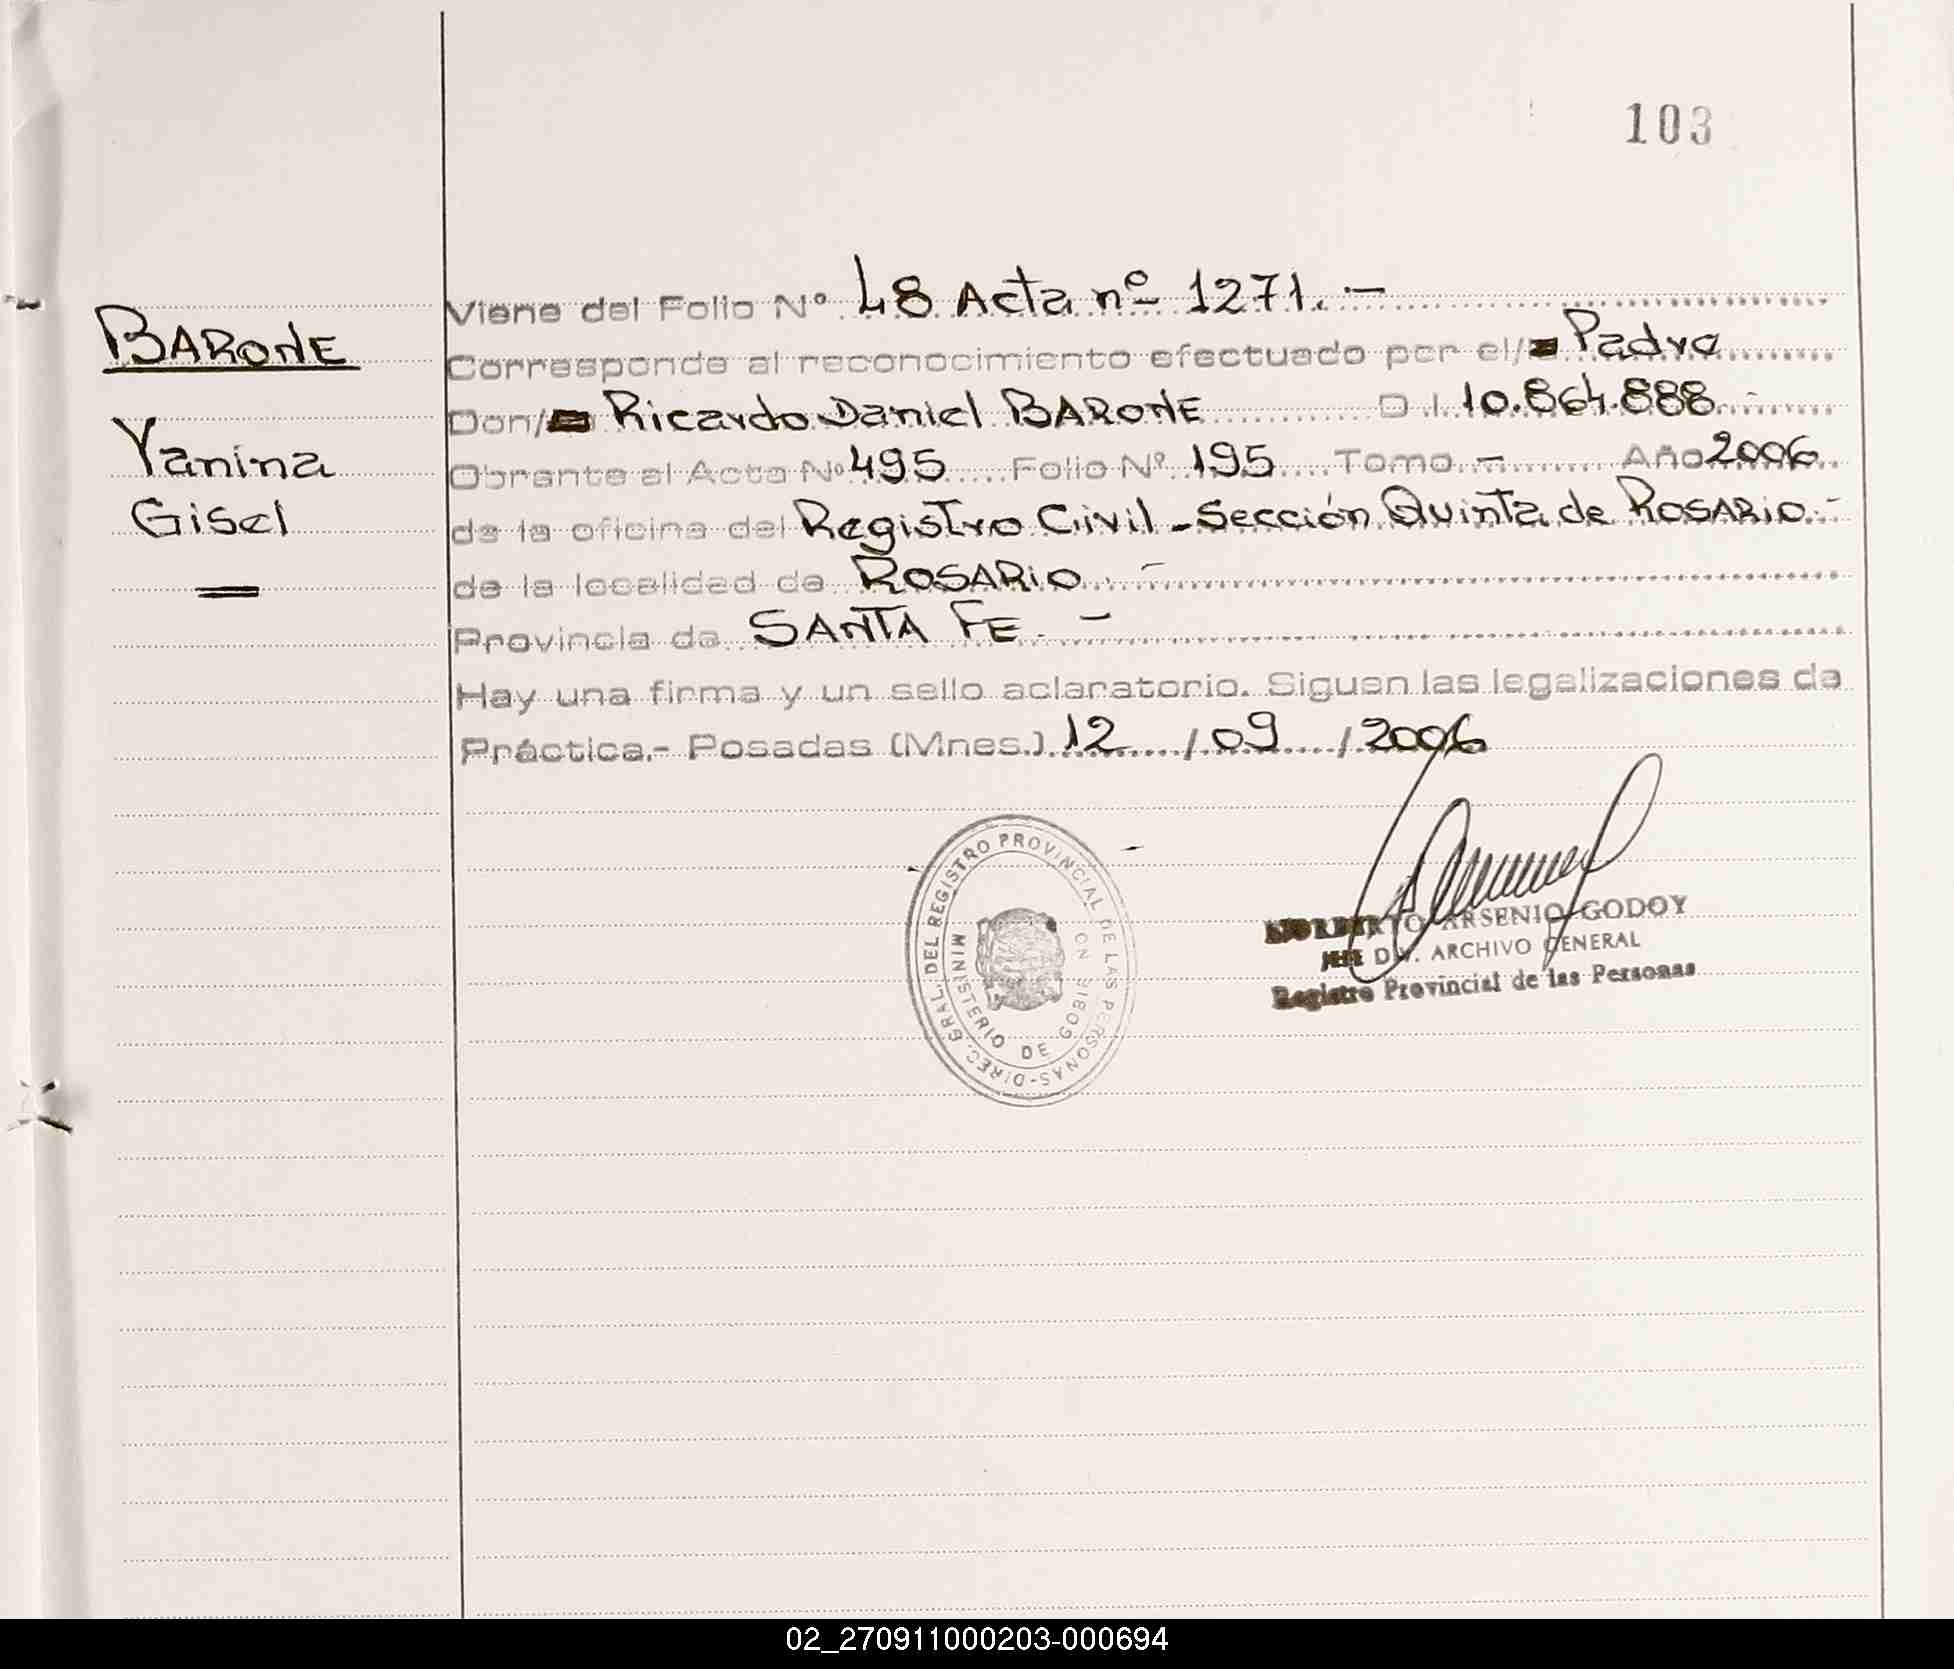 103
BARONE
Yanina
Gisel
Viene del Folio Nº 48 Acta nº 1271.-
Corresponde al reconocimiento efectuado por el/ Padre
Don/ Ricardo Daniel BARONE D.I. 10.864.888.-
Obrante al Acta Nº 495 Folio Nº 195 Tomo - Año 2006
de la oficina del Registro Civil - Sección Quinta de ROSARIO.-
de la localidad de ROSARIO.-
Provincia de SANTA FE.-
Hay una firma y un sello aclaratorio. Siguen las legalizaciones de
Práctica.- Posadas (Mnes.) 12 / 09 / 2006
DIREC. GRAL. DEL REGISTRO PROVINCIAL DE LAS PERSONAS-
MINISTERIO DE GOBIERNO
NORBERTO ARSENIO GODOY
JEFE DIV. ARCHIVO GENERAL
Registro Provincial de las Personas
02_270911000203-000694